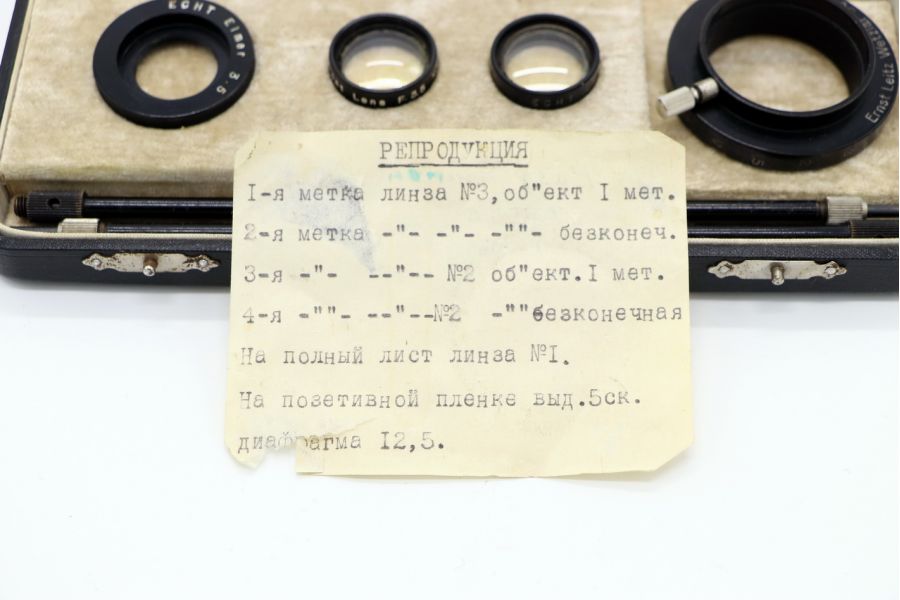 ECHT Elmar 3.5
ECHT
Ernst Leitz Wetzlar
РЕПРОДУКЦИЯ
I-я метка линза №3,об"ект I мет.
2-я метка -"- -"- -""- безконеч.
3-я -"- --"-- №2 об"ект.I мет.
4-я -""- --"--№2 -""безконечная
На полный лист линза №I.
На позетивной пленке выд.5ск.
диафрагма I2,5.